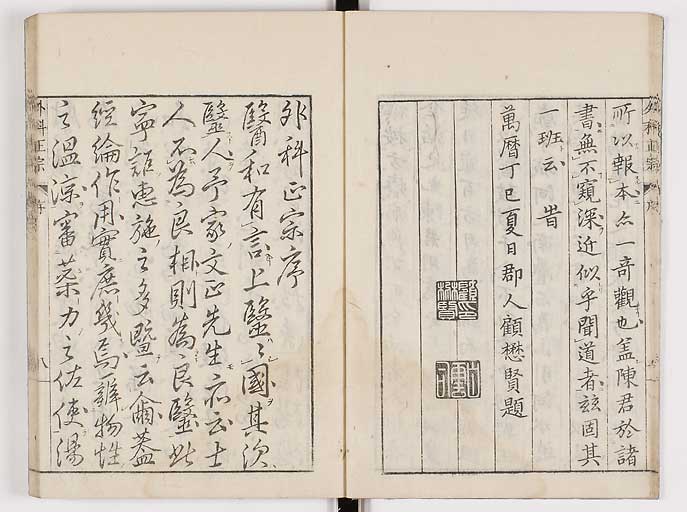 所以報本亦一奇觀也盖陳君於諸
書無不窺深近似乎聞道者玆固其
一班云旹
萬曆丁巳夏日郡人顧懋賢題
外科正宗序
醫和有言上醫〻國其次
醫人予家文正先生亦云士
人不為良相則為良醫此
寧詎惠施之多暨云爾蓋
經綸作用實庶幾焉辨物性
之溫涼審藥力之佐使湯
外科正宗
序
八